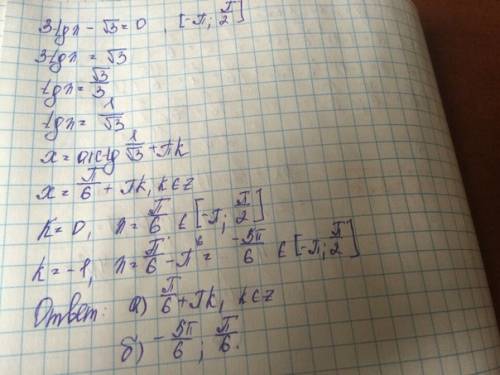 3tgx - √3 = 0 , [-π; π/2]
3tgx = √3
tgx = √3/3
tgx = 1/√3
x = arctg 1/√3 + πk
x = π/6 + πk, k∈z
k = 0, x = π/6 ∈ [-π; π/2]
k = -1, x = π/6 - π = -5π/6 ∈ [-π; π/2]
Ответ: а) π/6 + πk, k∈z
б) -5π/6 ; π/6.